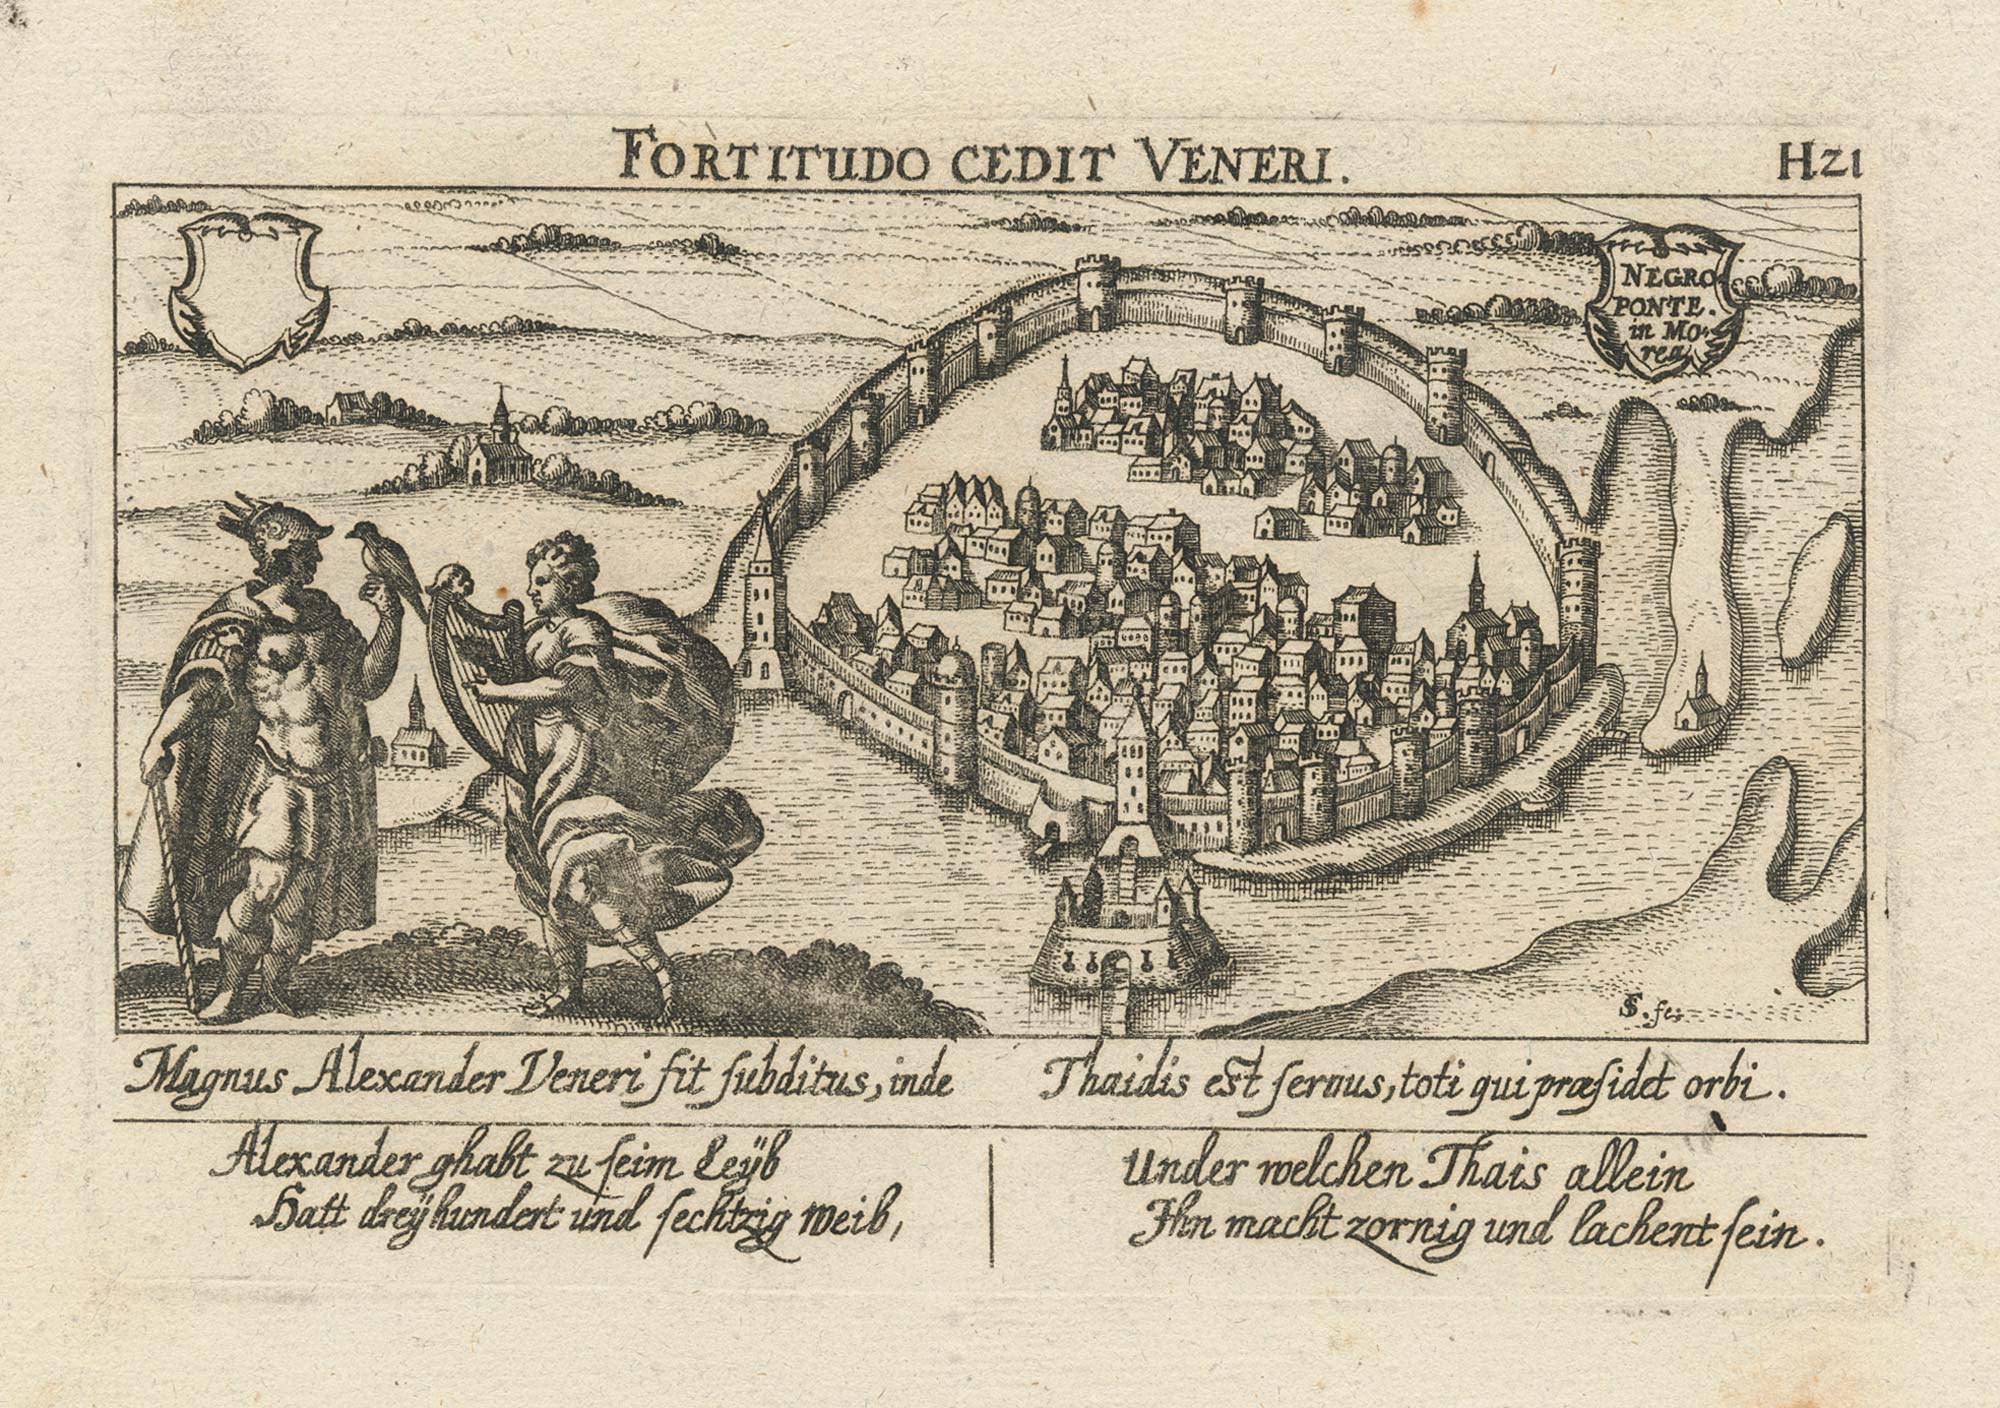 FORTITUDO CEDIT VENERI.
H21
NEGRO
PONTE.
in MO-
rea
S. fe:
Magnus Alexander Veneri fit ſubditus, inde
Thaidis eſt ſeruus, toti qui præſidet orbi.
Alexander ghabt zu ſeim Leÿb
Hatt dreÿhundert und ſechtzig weib,
Under welchen Thais allein
Ihn macht zornig und lachent ſein.